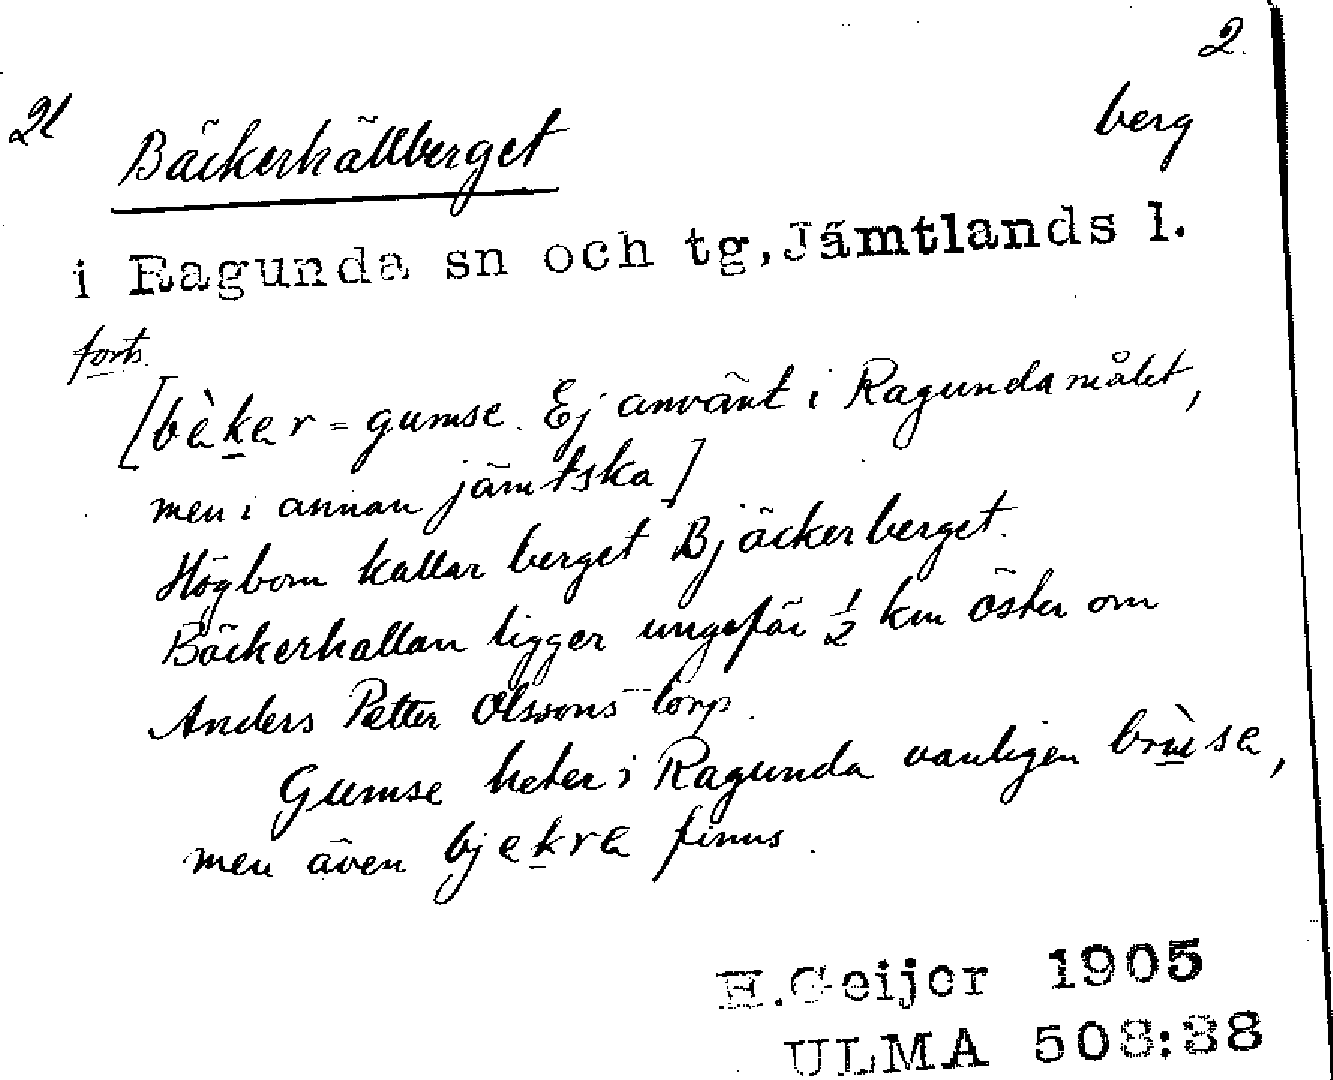 2.
21 Bäckerhällberget berg
i Ragunda sn och tg, Jämtlands l.
forts.
[bèker = gumse. Ej använt i Ragundamålet,
men i annan jämtska]
Högbom kallar berget Bjäckerberget.
Bäckerhallan ligger ungefär ½ km öster om
Anders Petter Olssons torp.
Gumse heter i Ragunda vanligen brùse,
men även bjekre finns.
H. Geijer 1905
ULMA 508:38